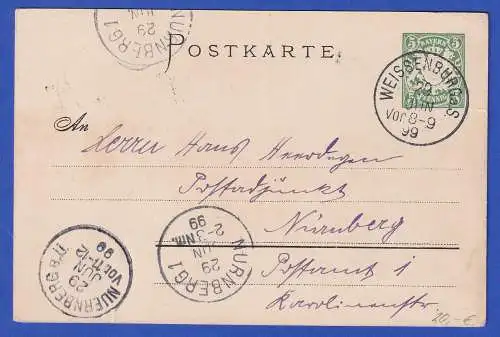 NÜRNBERG 1
29
JUN
POSTKARTE.
5 BAYERN 5
PFENNIG
WEISSENBURG a.S.
29
JUN
VOR 8-9
99
An
Herrn Hans Heerdegen
Postadjunkt
Nürnberg
Postamt 1
Karolinenstr.
NUERNBERG
29
JUN
VOR 11-12
99
NÜRNBERG 1
29
JUN
2-3 Nm.
99
20,- €